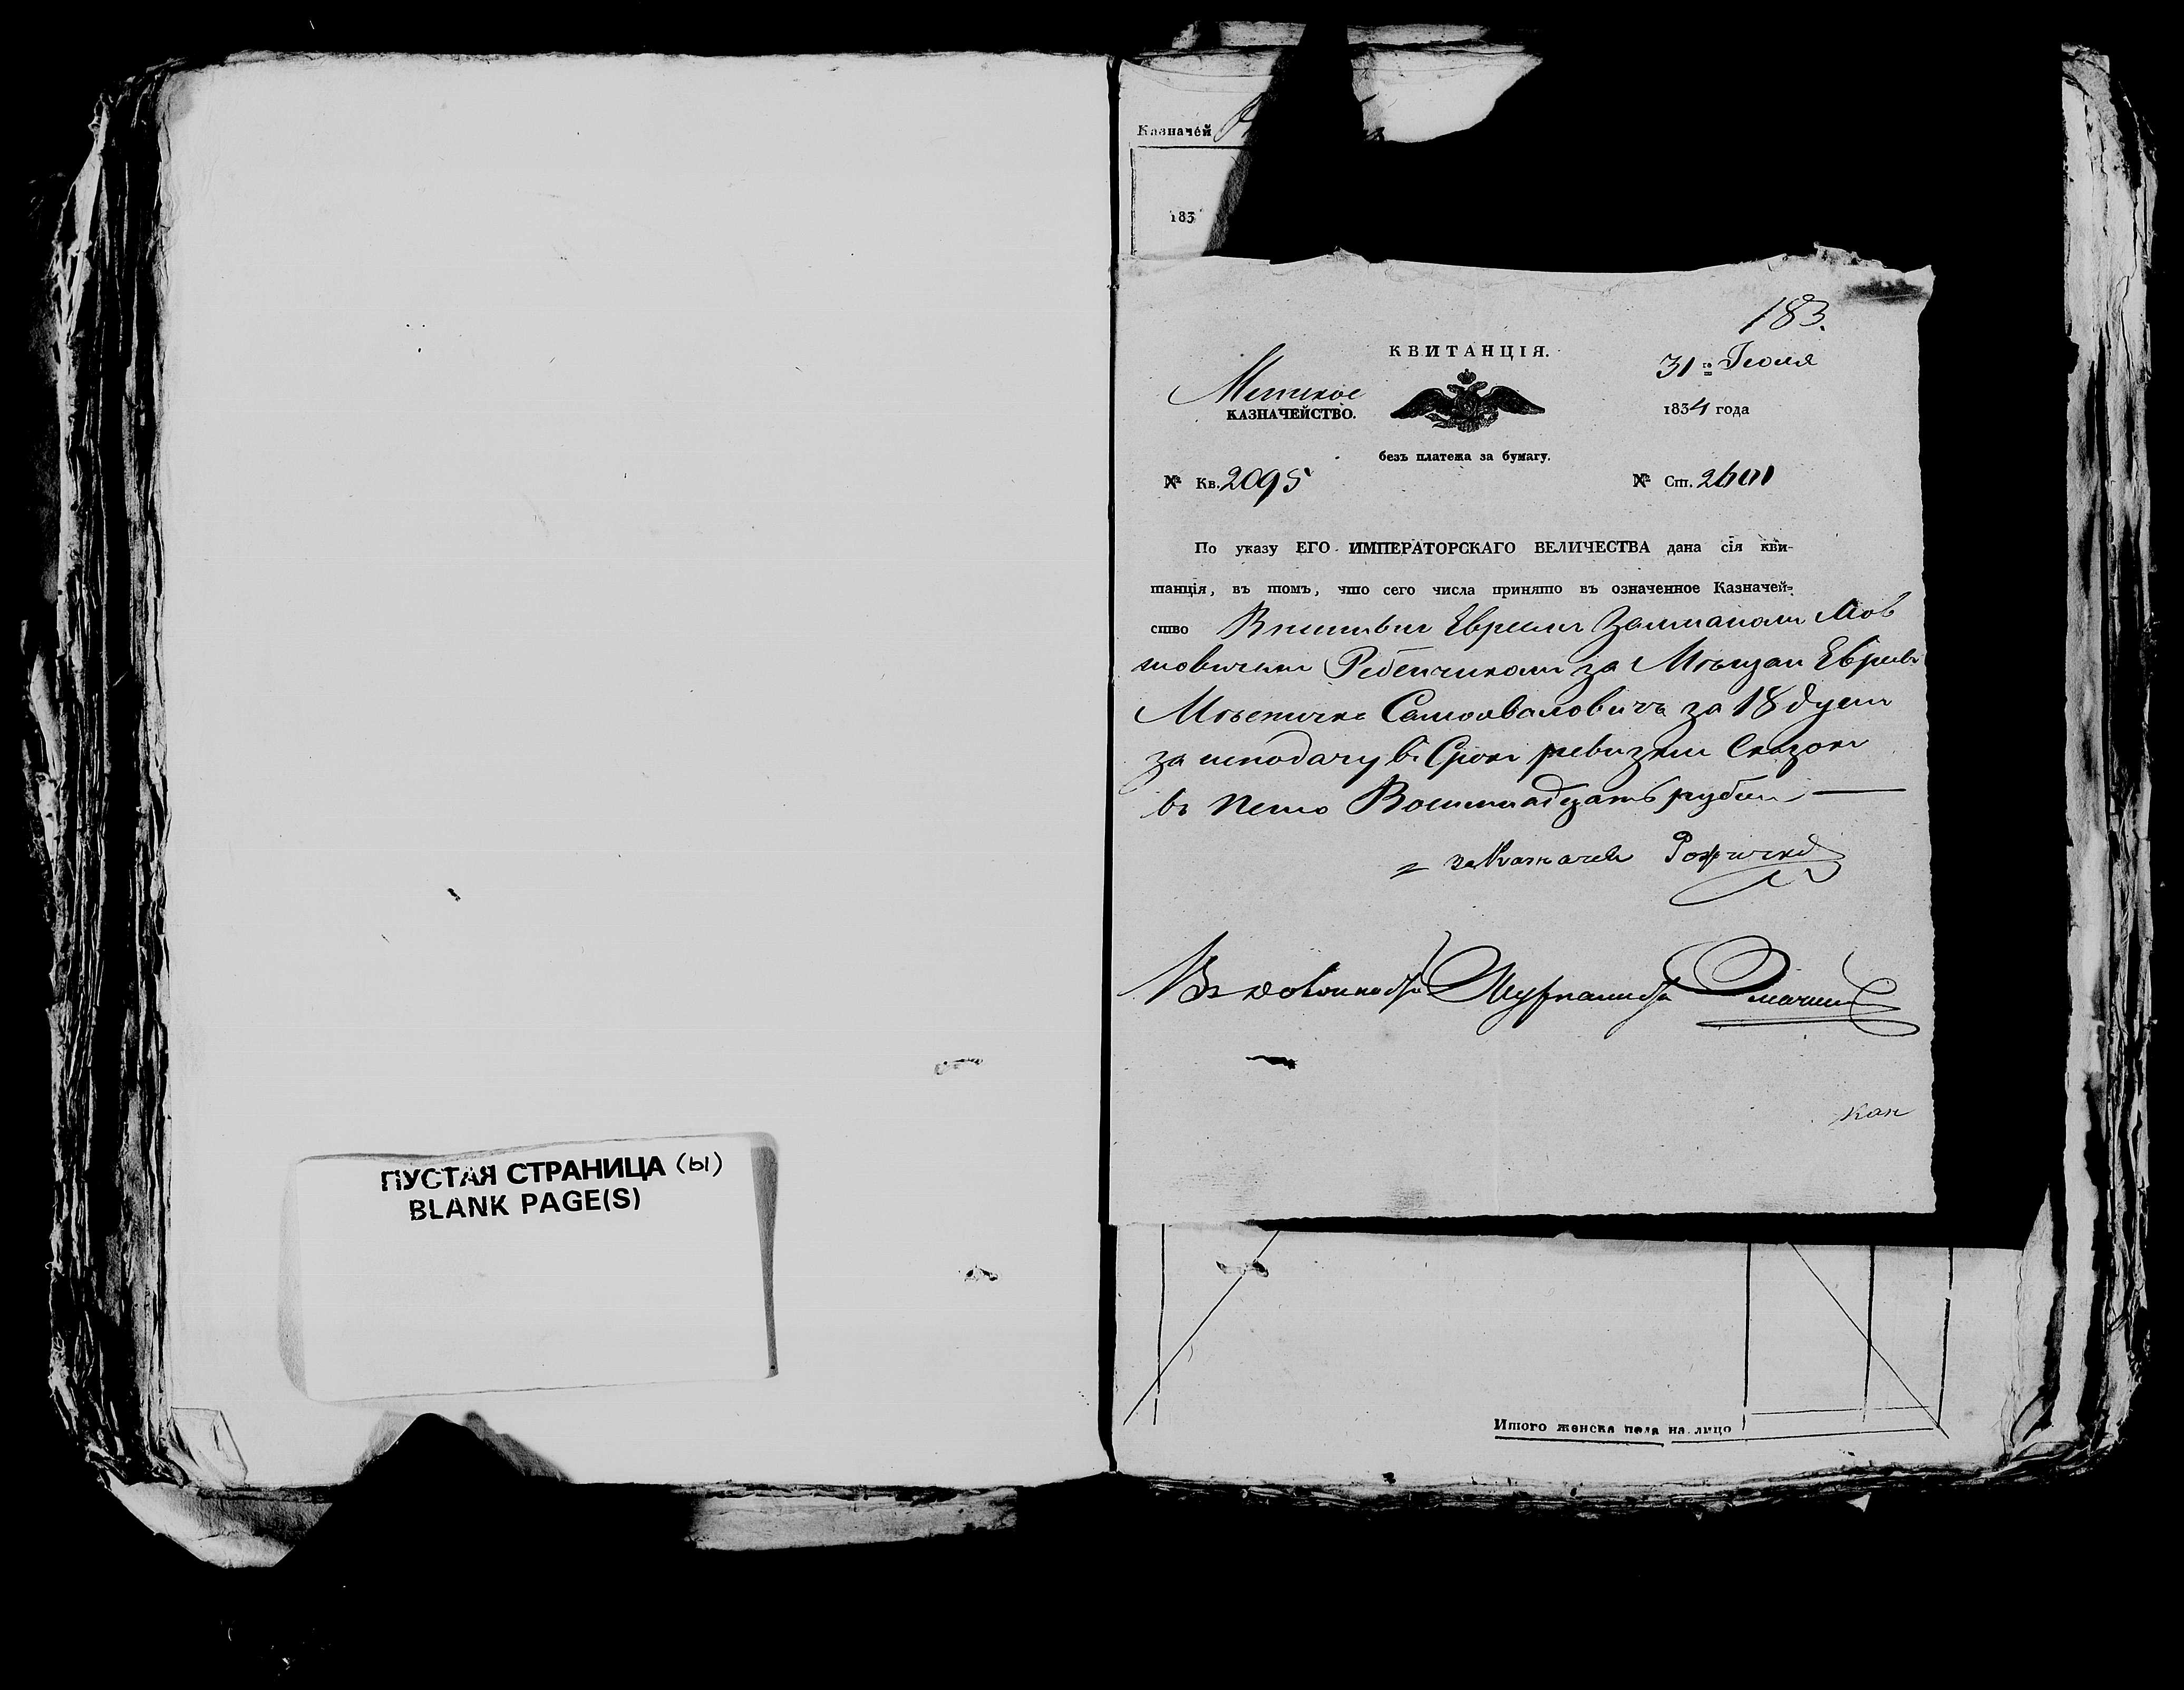 ПУСТАЯ СТРАНИЦА (ы)
BLANK PAGE(S)
Казначей
183
183.
КВИТАНЦІЯ.
31 го Іюля
Минское
КАЗНАЧЕЙСТВО.
1834 года
безъ платежа за бумагу.
№ Кв. 2095
№ Ст. 2601
По указу ЕГО ИМПЕРАТОРСКАГО ВЕЛИЧЕСТВА дана сія кви-
танція, въ томъ, что сего числа принято въ означенное Казначей-
ство Евреемъ Залманомъ Мов
шовичемъ Ребенчикомъ за Мѣщан Евреевъ
Самойловича за 18 душъ
за неподачу въ Срокъ ревизкихъ Сказокъ
въ пеню Восемнадцать рублей
за Казначея
Кан
Итого женска пола на лицо